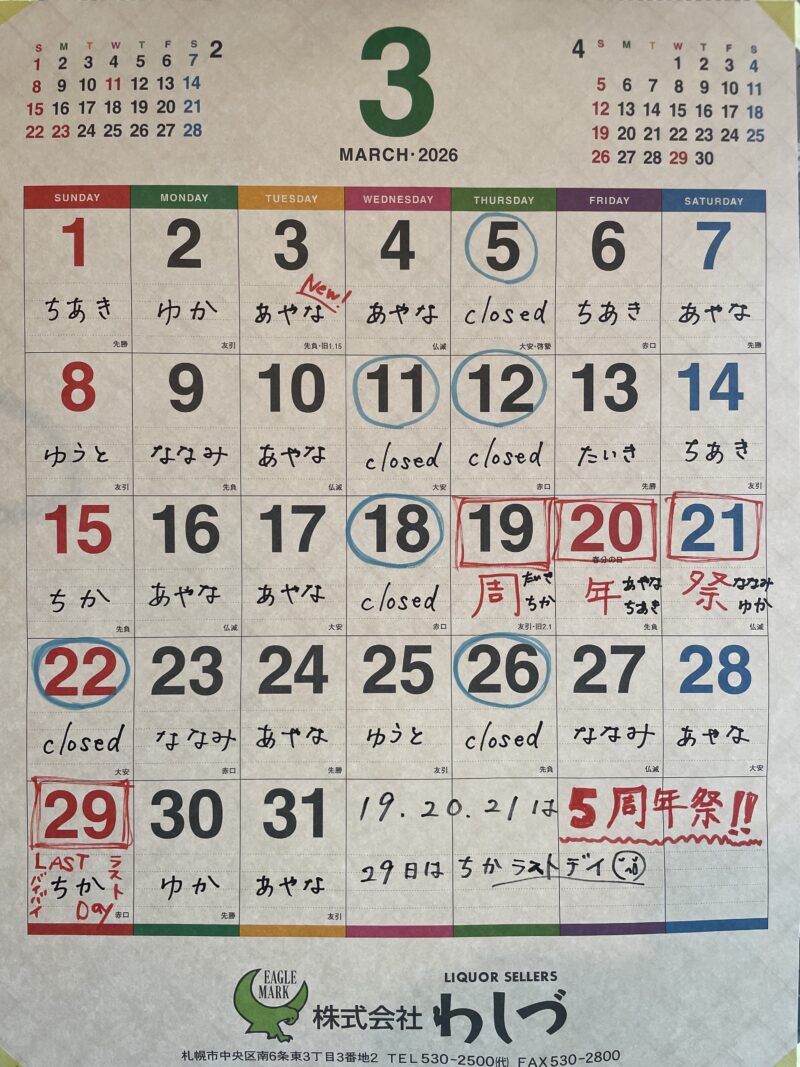 2
S M T W T F S
1 2 3 4 5 6 7
8 9 10 11 12 13 14
15 16 17 18 19 20 21
22 23 24 25 26 27 28
3
MARCH・2026
4
S M T W T F S
1 2 3 4
5 6 7 8 9 10 11
12 13 14 15 16 17 18
19 20 21 22 23 24 25
26 27 28 29 30
SUNDAY MONDAY TUESDAY WEDNESDAY THURSDAY FRIDAY SATURDAY
1 2 3 4 5 6 7
New!
ちあき ゆか あやな あやな closed ちあき あやな
先勝 友引 先負・旧1.15 仏滅 大安・啓蟄 赤口 先勝
8 9 10 11 12 13 14
ゆうと ななみ あやな closed closed たいき ちあき
友引 先負 仏滅 大安 赤口 先勝 友引
15 16 17 18 19 20 21
春分の日
ちか あやな あやな closed 周 たいき ちか 年 あやな ちあき 祭 ななみ ゆか
先負 仏滅 大安 赤口 友引・旧2.1 先負 仏滅
22 23 24 25 26 27 28
closed ななみ あやな ゆうと closed ななみ あやな
大安 赤口 先勝 友引 先負 仏滅 大安
29 30 31 19.20.21は 5周年祭!!
LAST ラスト
バイバイ ちか ゆか あやな 29日は ちか ラストデイ
Day
赤口 先勝 友引
EAGLE MARK
LIQUOR SELLERS
株式会社 わしづ
札幌市中央区南6条東3丁目3番地2 TEL530-2500㈹ FAX530-2800